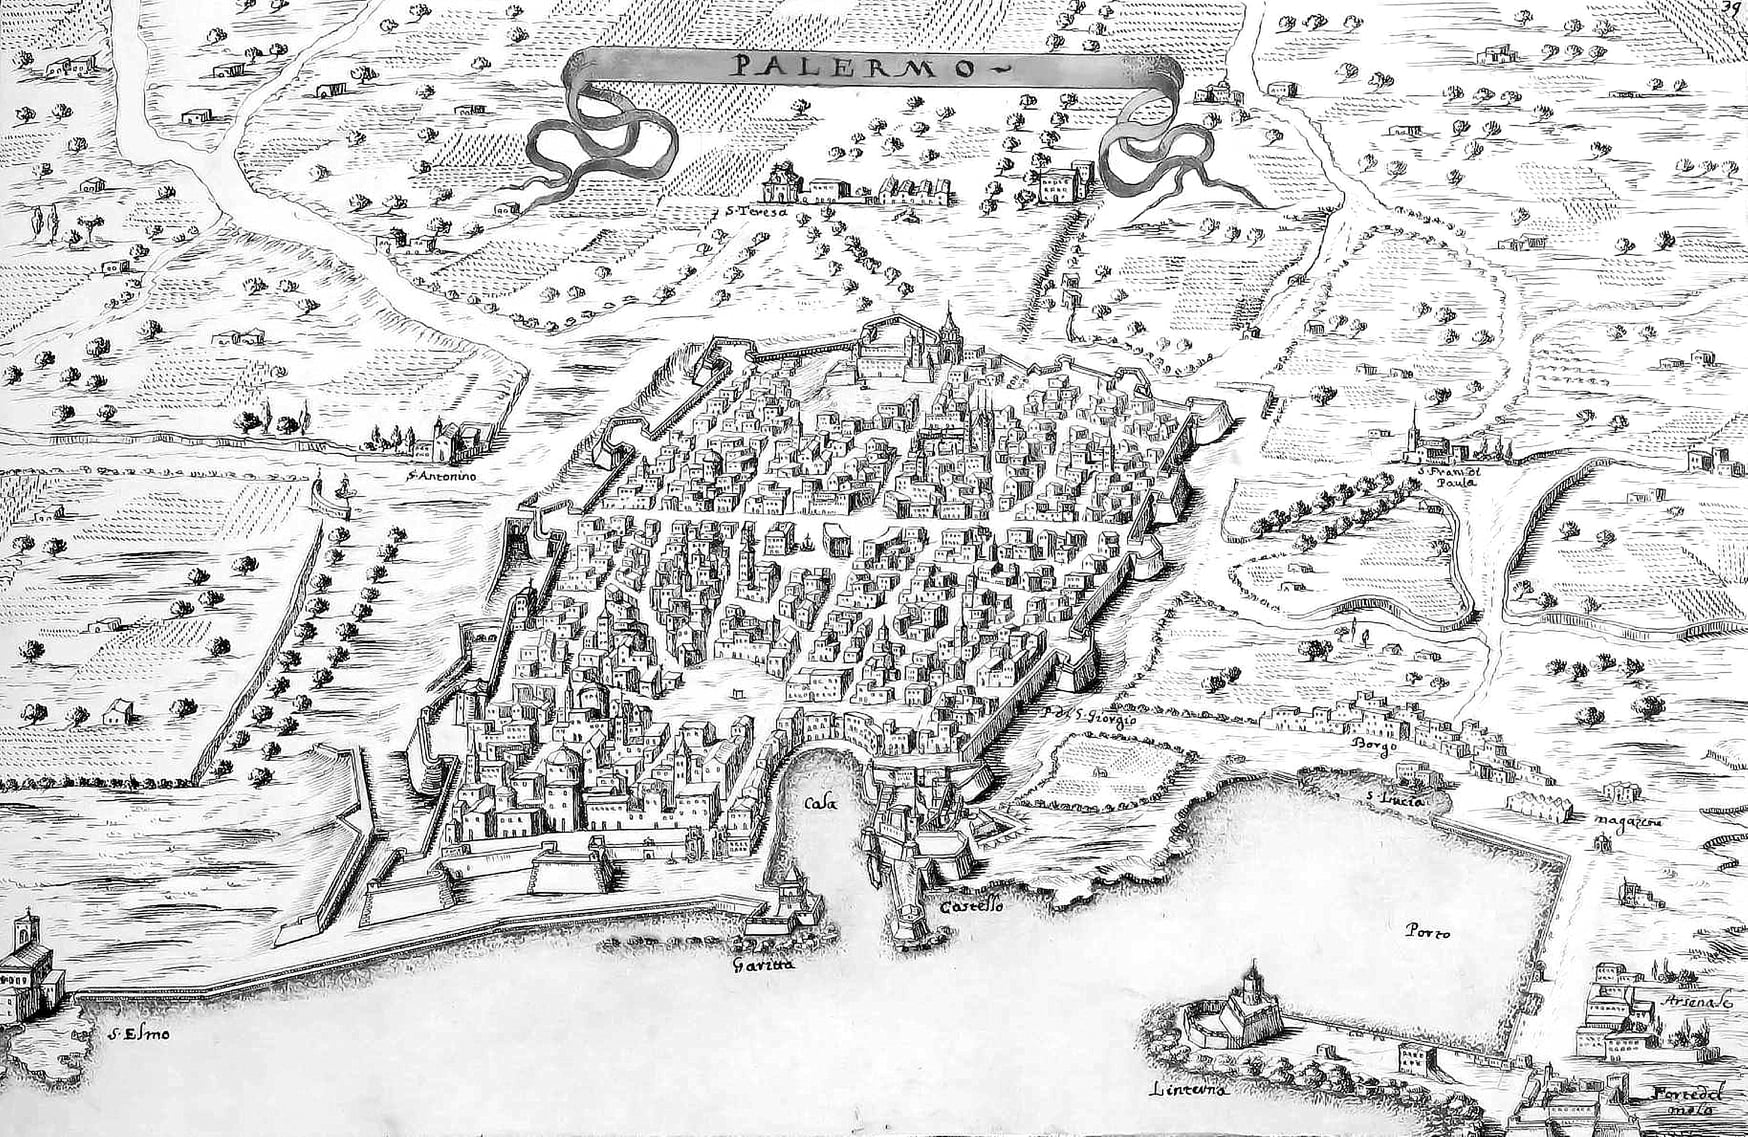 39
PALERMO
S. Teresa
S. Antonino
S. Fran. di
Paula
P. di S. Giorgio
Borgo
S. Lucia
magazene
Cala
Castello
Porto
Garitta
Arsenale
S. Elmo
Linterna
Forte del
molo